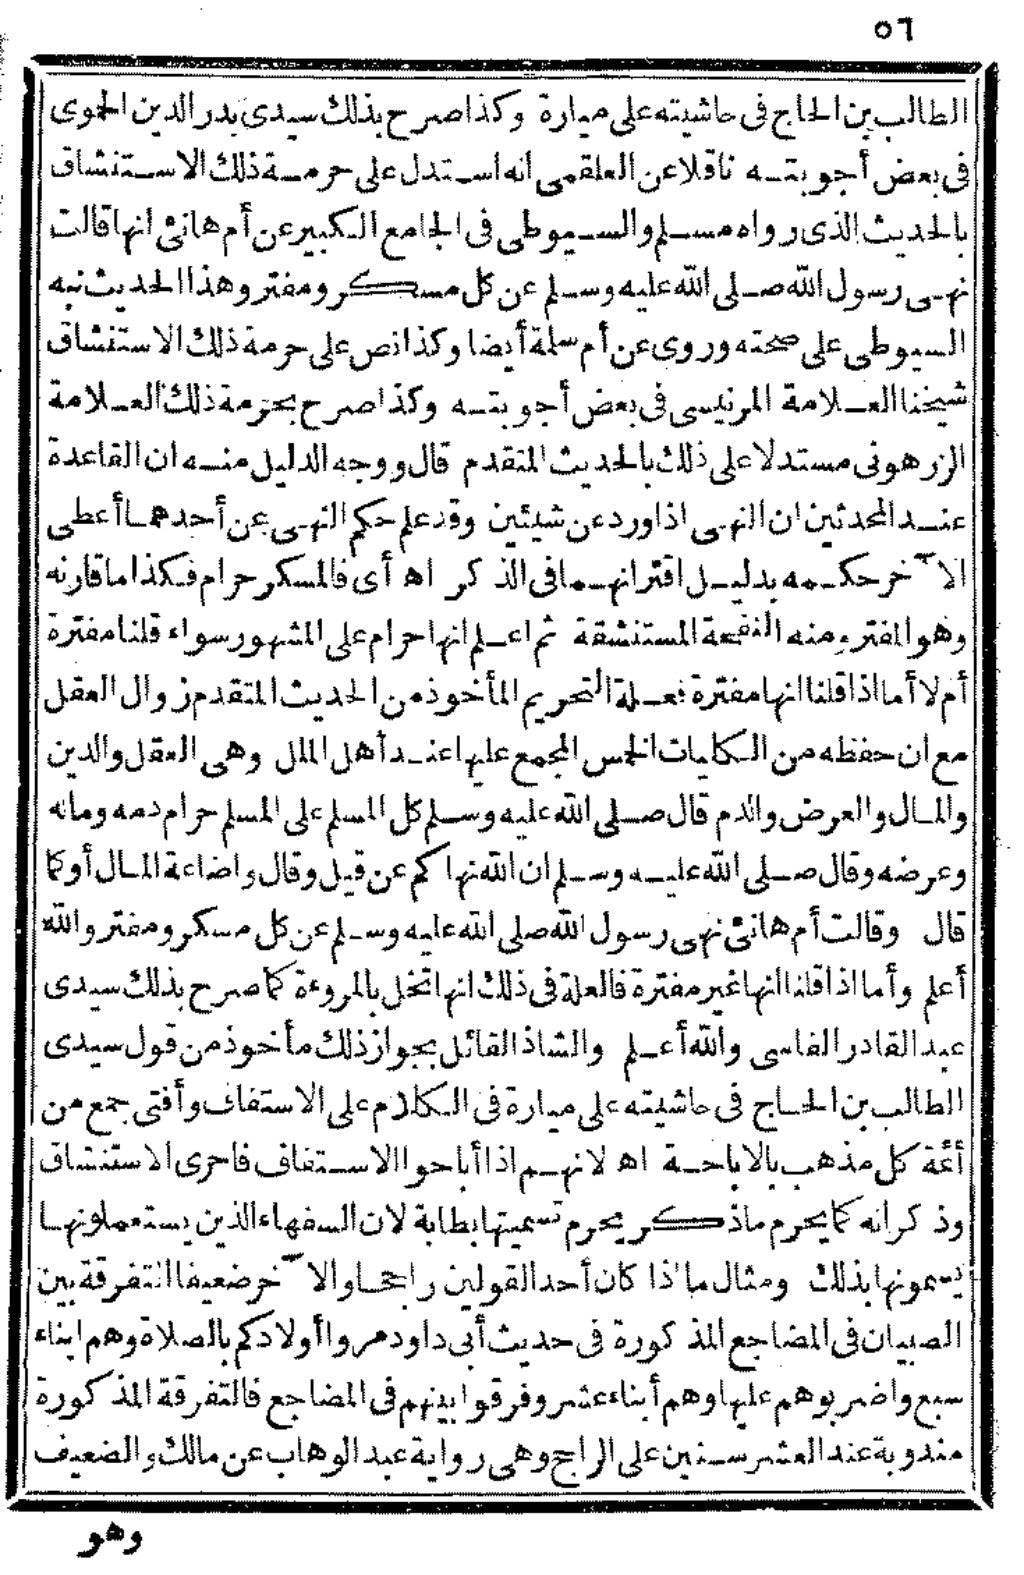 ٥٦
الطالب بن الحاج فى حاشيته على ميارة وكذا صرح بذلك سيدى بدر الدين الحموى
فى بعض أجوبته ناقلا عن العلقمى انه استدل على حرمة ذلك الاستنشاق
بالحديث الذى رواه مسلم والسيوطى فى الجامع الكبير عن أم هانئ انها قالت
نهى رسول الله صلى الله عليه وسلم عن كل مسكر ومفتر وهذا الحديث نبه
السيوطى على صحته وروى عن أم سلمة أيضا وكذا نص على حرمة ذلك الاستنشاق
شيخنا العلامة المرنيسى فى بعض أجوبته وكذا صرح بحرمة ذلك العلامة
الزرهونى مستدلا على ذلك بالحديث المتقدم قال ووجه الدليل منه ان القاعدة
عند المحدثين ان النهى اذا ورد عن شيئين وقد علم حكم النهى عن أحدهما أعطى
الآخر حكمه بدليل اقترانهما فى الذكر اه أى فالمسكر حرام فكذا ما قارنه
وهو المفتر ومنه النفحة المستنشقة ثم اعلم انها حرام على المشهور سواء قلنا مفترة
أم لا أما اذا قلنا انها مفترة فعلة التحريم المأخوذ من الحديث المتقدم زوال العقل
مع ان حفظه من الكليات الخمس المجمع عليها عند أهل الملل وهى العقل والدين
والمال والعرض والدم قال صلى الله عليه وسلم كل المسلم على المسلم حرام دمه وماله
وعرضه وقال صلى الله عليه وسلم ان الله نهاكم عن قيل وقال واضاعة المال أو كما
قال وقالت أم هانئ نهى رسول الله صلى الله عليه وسلم عن كل مسكر ومفتر والله
أعلم وأما اذا قلنا انها غير مفترة فالعلة فى ذلك انها تخل بالمروءة كما صرح بذلك سيدى
عبد القادر الفاسى والله أعلم والشاذ القائل بجواز ذلك مأخوذ من قول سيدى
الطالب بن الحاج فى حاشيته على ميارة فى الكلام على الاستفاف وأفتى جمع من
أئمة كل مذهب بالاباحة اه لانهم اذا أباحوا الاستفاف فاحرى الاستنشاق
وذكر انه كما يحرم ما ذكر يحرم تسميتها بطابة لان السفهاء الذين يستعملونها
يسمونها بذلك ومثال ما اذا كان أحد القولين راجحا والآخر ضعيفا التفرقة بين
الصبيان فى المضاجع المذكورة فى حديث أبى داود مروا أولادكم بالصلاة وهم ابناء
سبع واضربوهم عليها وهم أبناء عشر وفرقوا بينهم فى المضاجع فالتفرقة المذكورة
مندوبة عند العشر سنين على الراجح وهى رواية عبد الوهاب عن مالك والضعيف
وهو